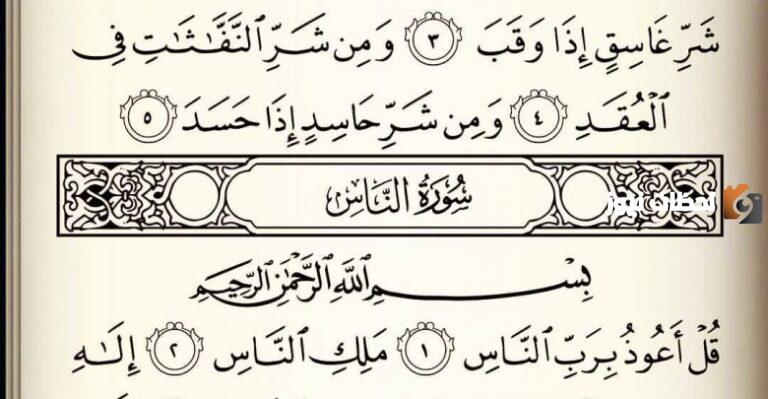 شَرِّ غَاسِقٍ إِذَا وَقَبَ ٣ وَمِن شَرِّ ٱلنَّفَّٰثَٰتِ فِي
ٱلۡعُقَدِ ٤ وَمِن شَرِّ حَاسِدٍ إِذَا حَسَدَ ٥
سُورَةُ النَّاسِ
بِسۡمِ ٱللَّهِ ٱلرَّحۡمَٰنِ ٱلرَّحِيمِ
قُلۡ أَعُوذُ بِرَبِّ ٱلنَّاسِ ١ مَلِكِ ٱلنَّاسِ ٢ إِلَٰهِ